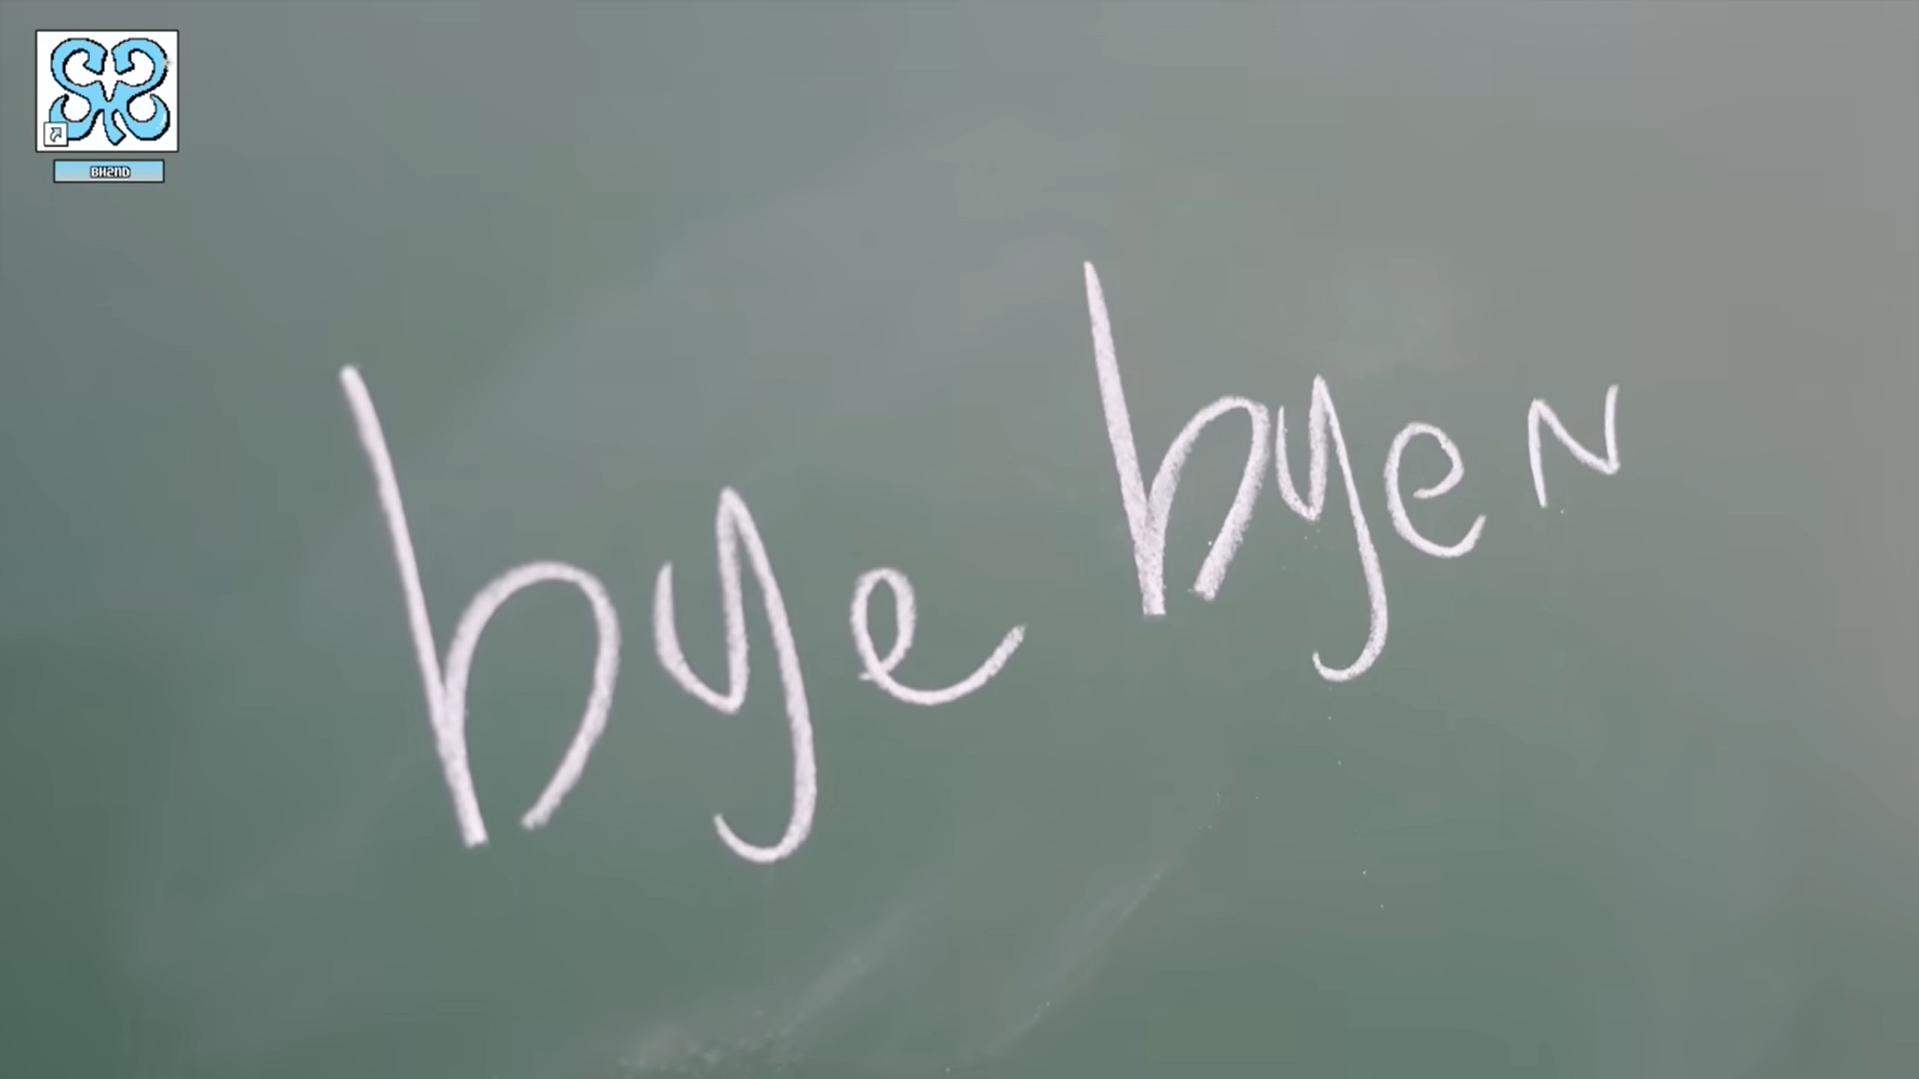 BH2ND
bye byen